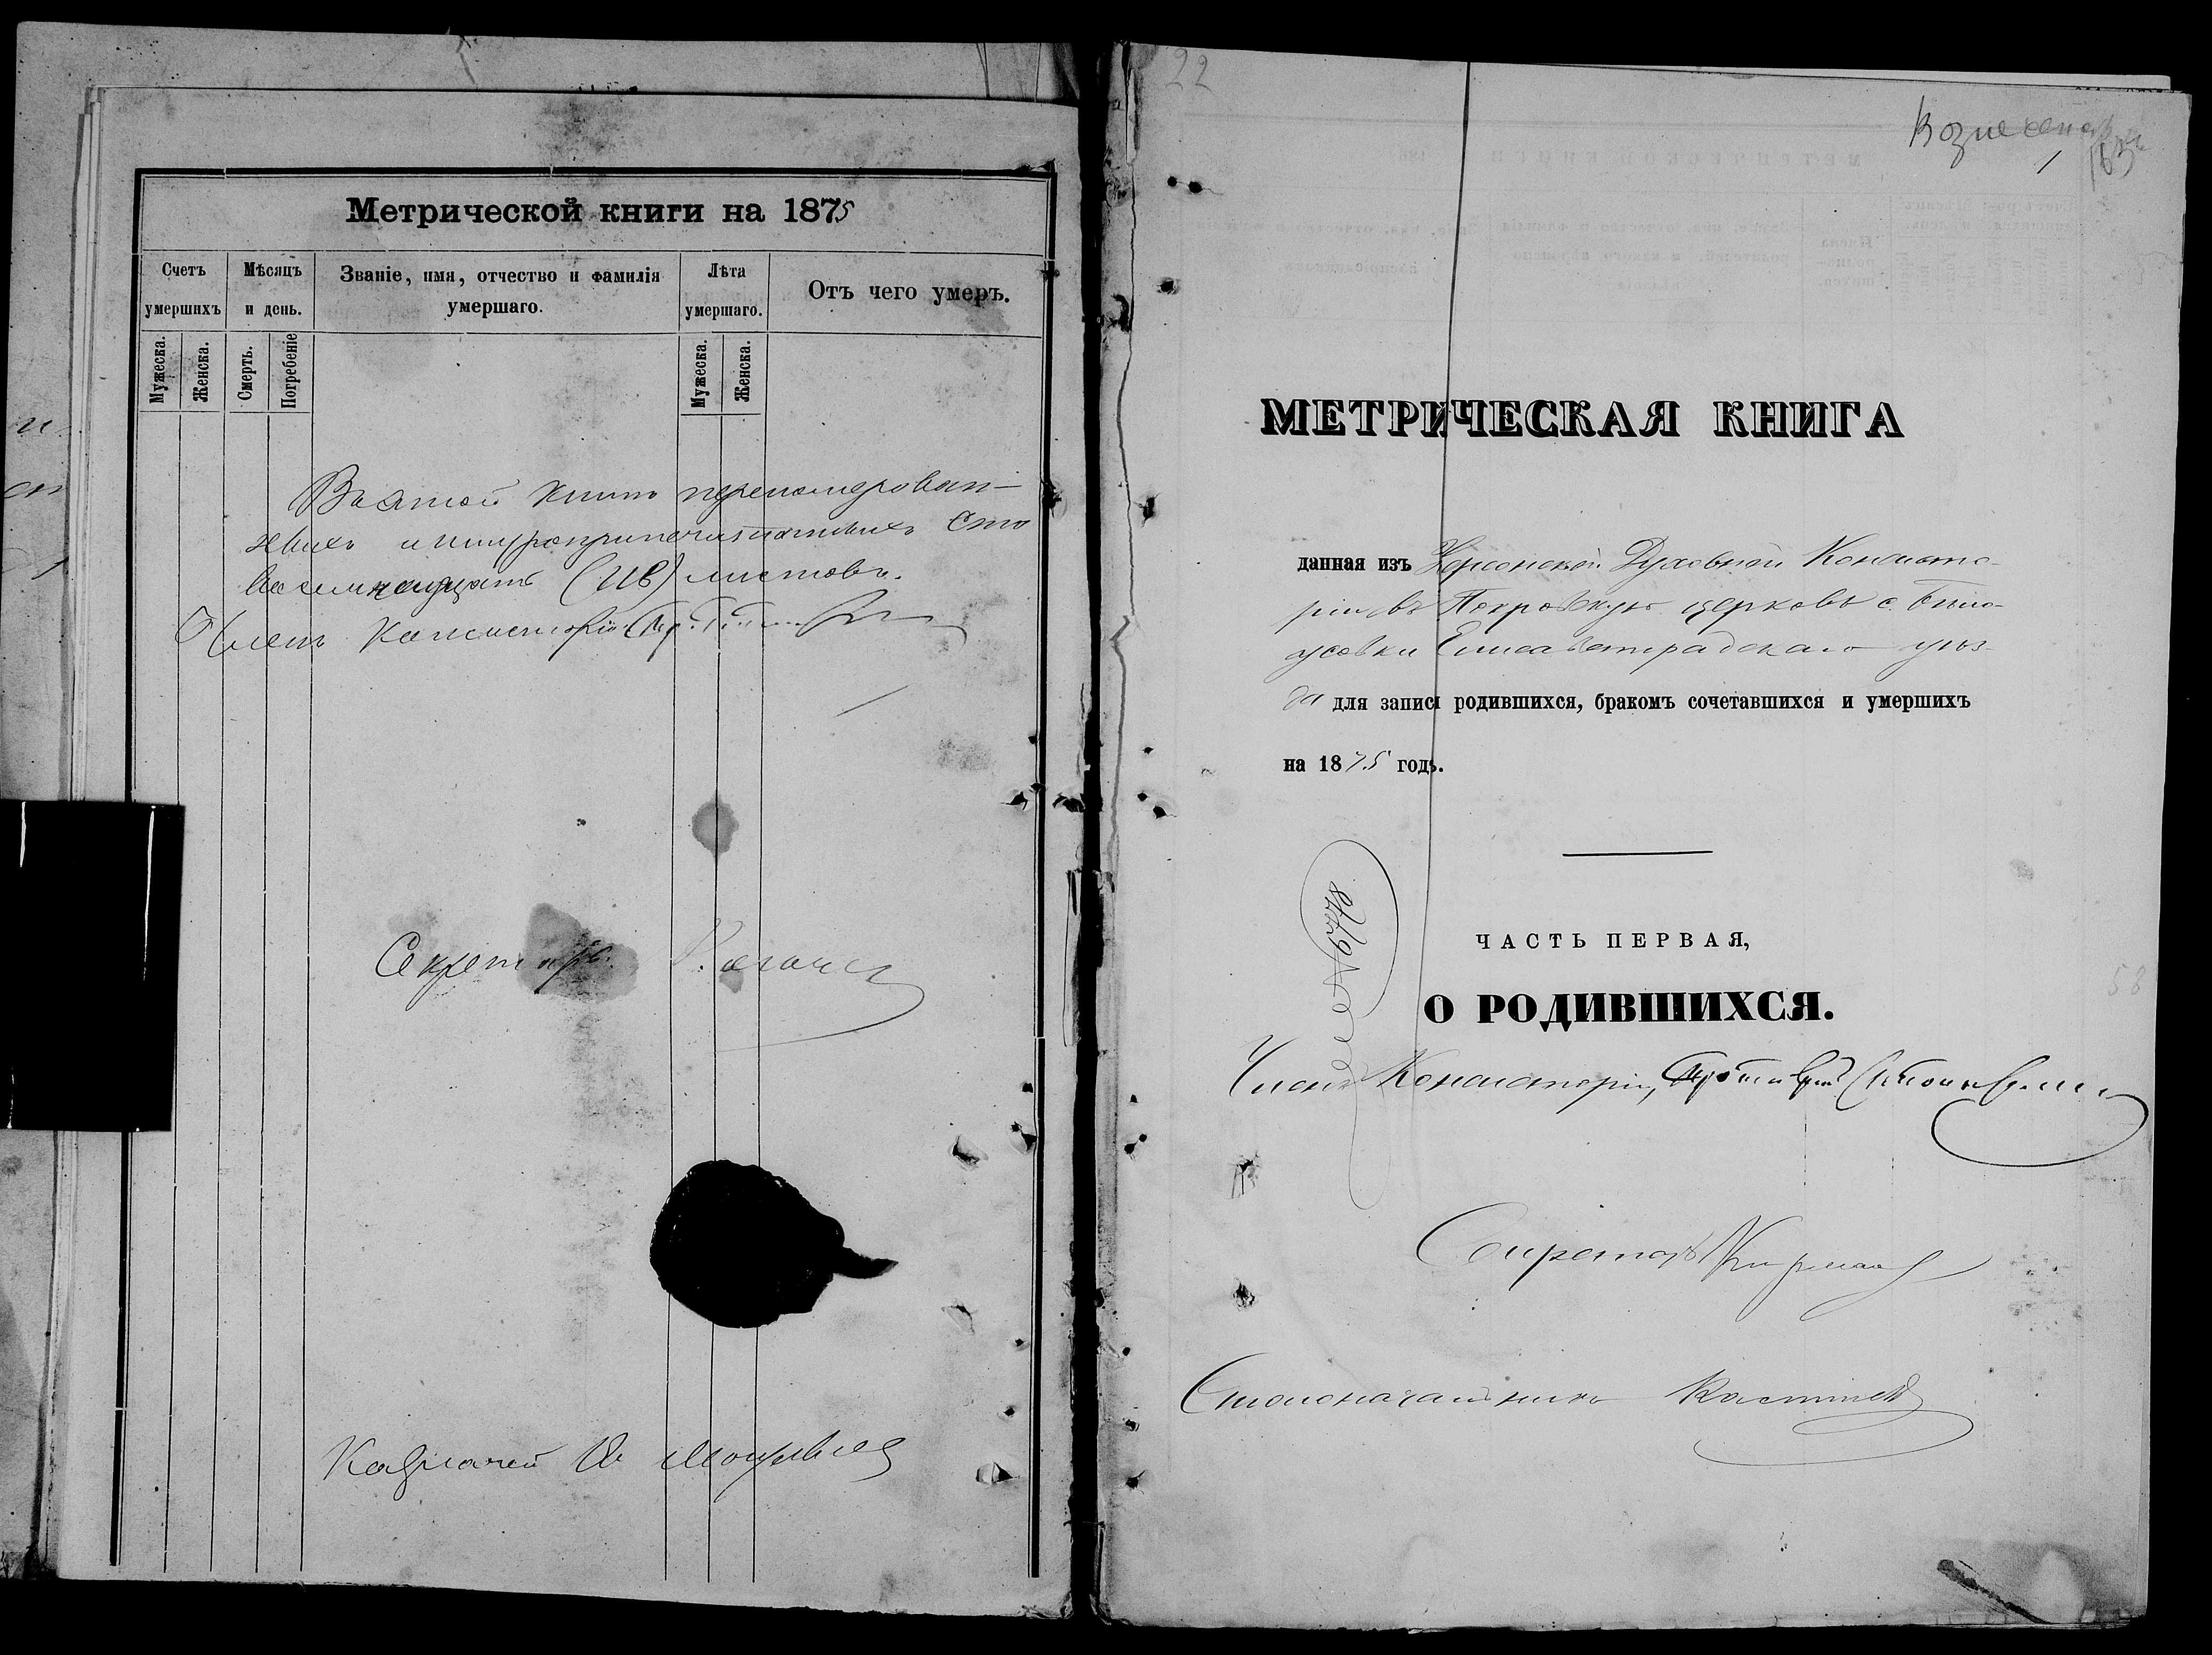 Метрической книги на 1875
Счетъ умершихъ
Мѣсяцъ и день.
Званіе, имя, отчество и фамилія умершаго.
Лѣта умершаго.
Отъ чего умеръ.
Мужеска.
Женска.
Смерть.
Погребеніе
Мужеска.
Женска.
Въ этой книгѣ перенумерован-
ныхъ и шнуроприпечатанныхъ сто
восемнадцать (118) листовъ.
Членъ Консисторіи
Секретарь
Казначей
22
1
МЕТРИЧЕСКАЯ КНИГА
данная изъ Херсонской Духовной Консисто-
ріи въ Покровскую церковь с.
Елисаветградскаго уѣз-
да для записі родившихся, бракомъ сочетавшихся и умершихъ
на 1875 годъ.
ЧАСТЬ ПЕРВАЯ,
58
О РОДИВШИХСЯ.
Членъ Консисторіи, Протоіерей
Секретарь
Столоначальникъ